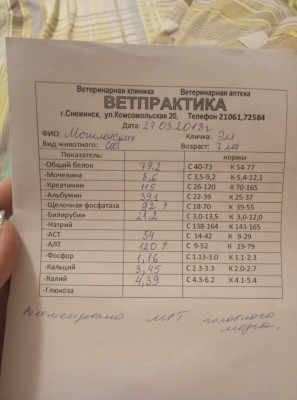 Ветеринарная клиника Ветеринарная аптека
ВЕТПРАКТИКА
г.Снежинск, ул.Комсомольская 2б, Телефон 21061,72584
Дата: 27.03.2018г
ФИО: Кличка: Эля
Вид животного: Соб Возраст: 7 лет
Показатель: нормы
-Общий белок 79,2 С 40-73 К 54-77
-Мочевина 8,6 С 3,5-9,2 К-5,4-12,1
-Креатинин 115 С 26-120 К 70-165
-Альбумин 39,1 С 22-39 К 25-37
-Щелочная фосфатаза 92 ↑ С 18-70 К 39-55
-Билирубин 21.2 С 3,0-13,5 К 3,0-12,0
-Натрий С 138-164 К 143-165
-АСТ 54 С 14-42 К 9-29
-АЛТ 120 ↑ С 9-52 К 19-79
-Фосфор 1,16 С 1.13-3.0 К 1.1-2.3
-Кальций 3,45 С 2.3-3.3 К 2.0-2.7
-Калий 4,39 С 4.3-6.2 К 4.1-5.4
-Глюкоза
Рекомендовано МРТ головного
мозга.